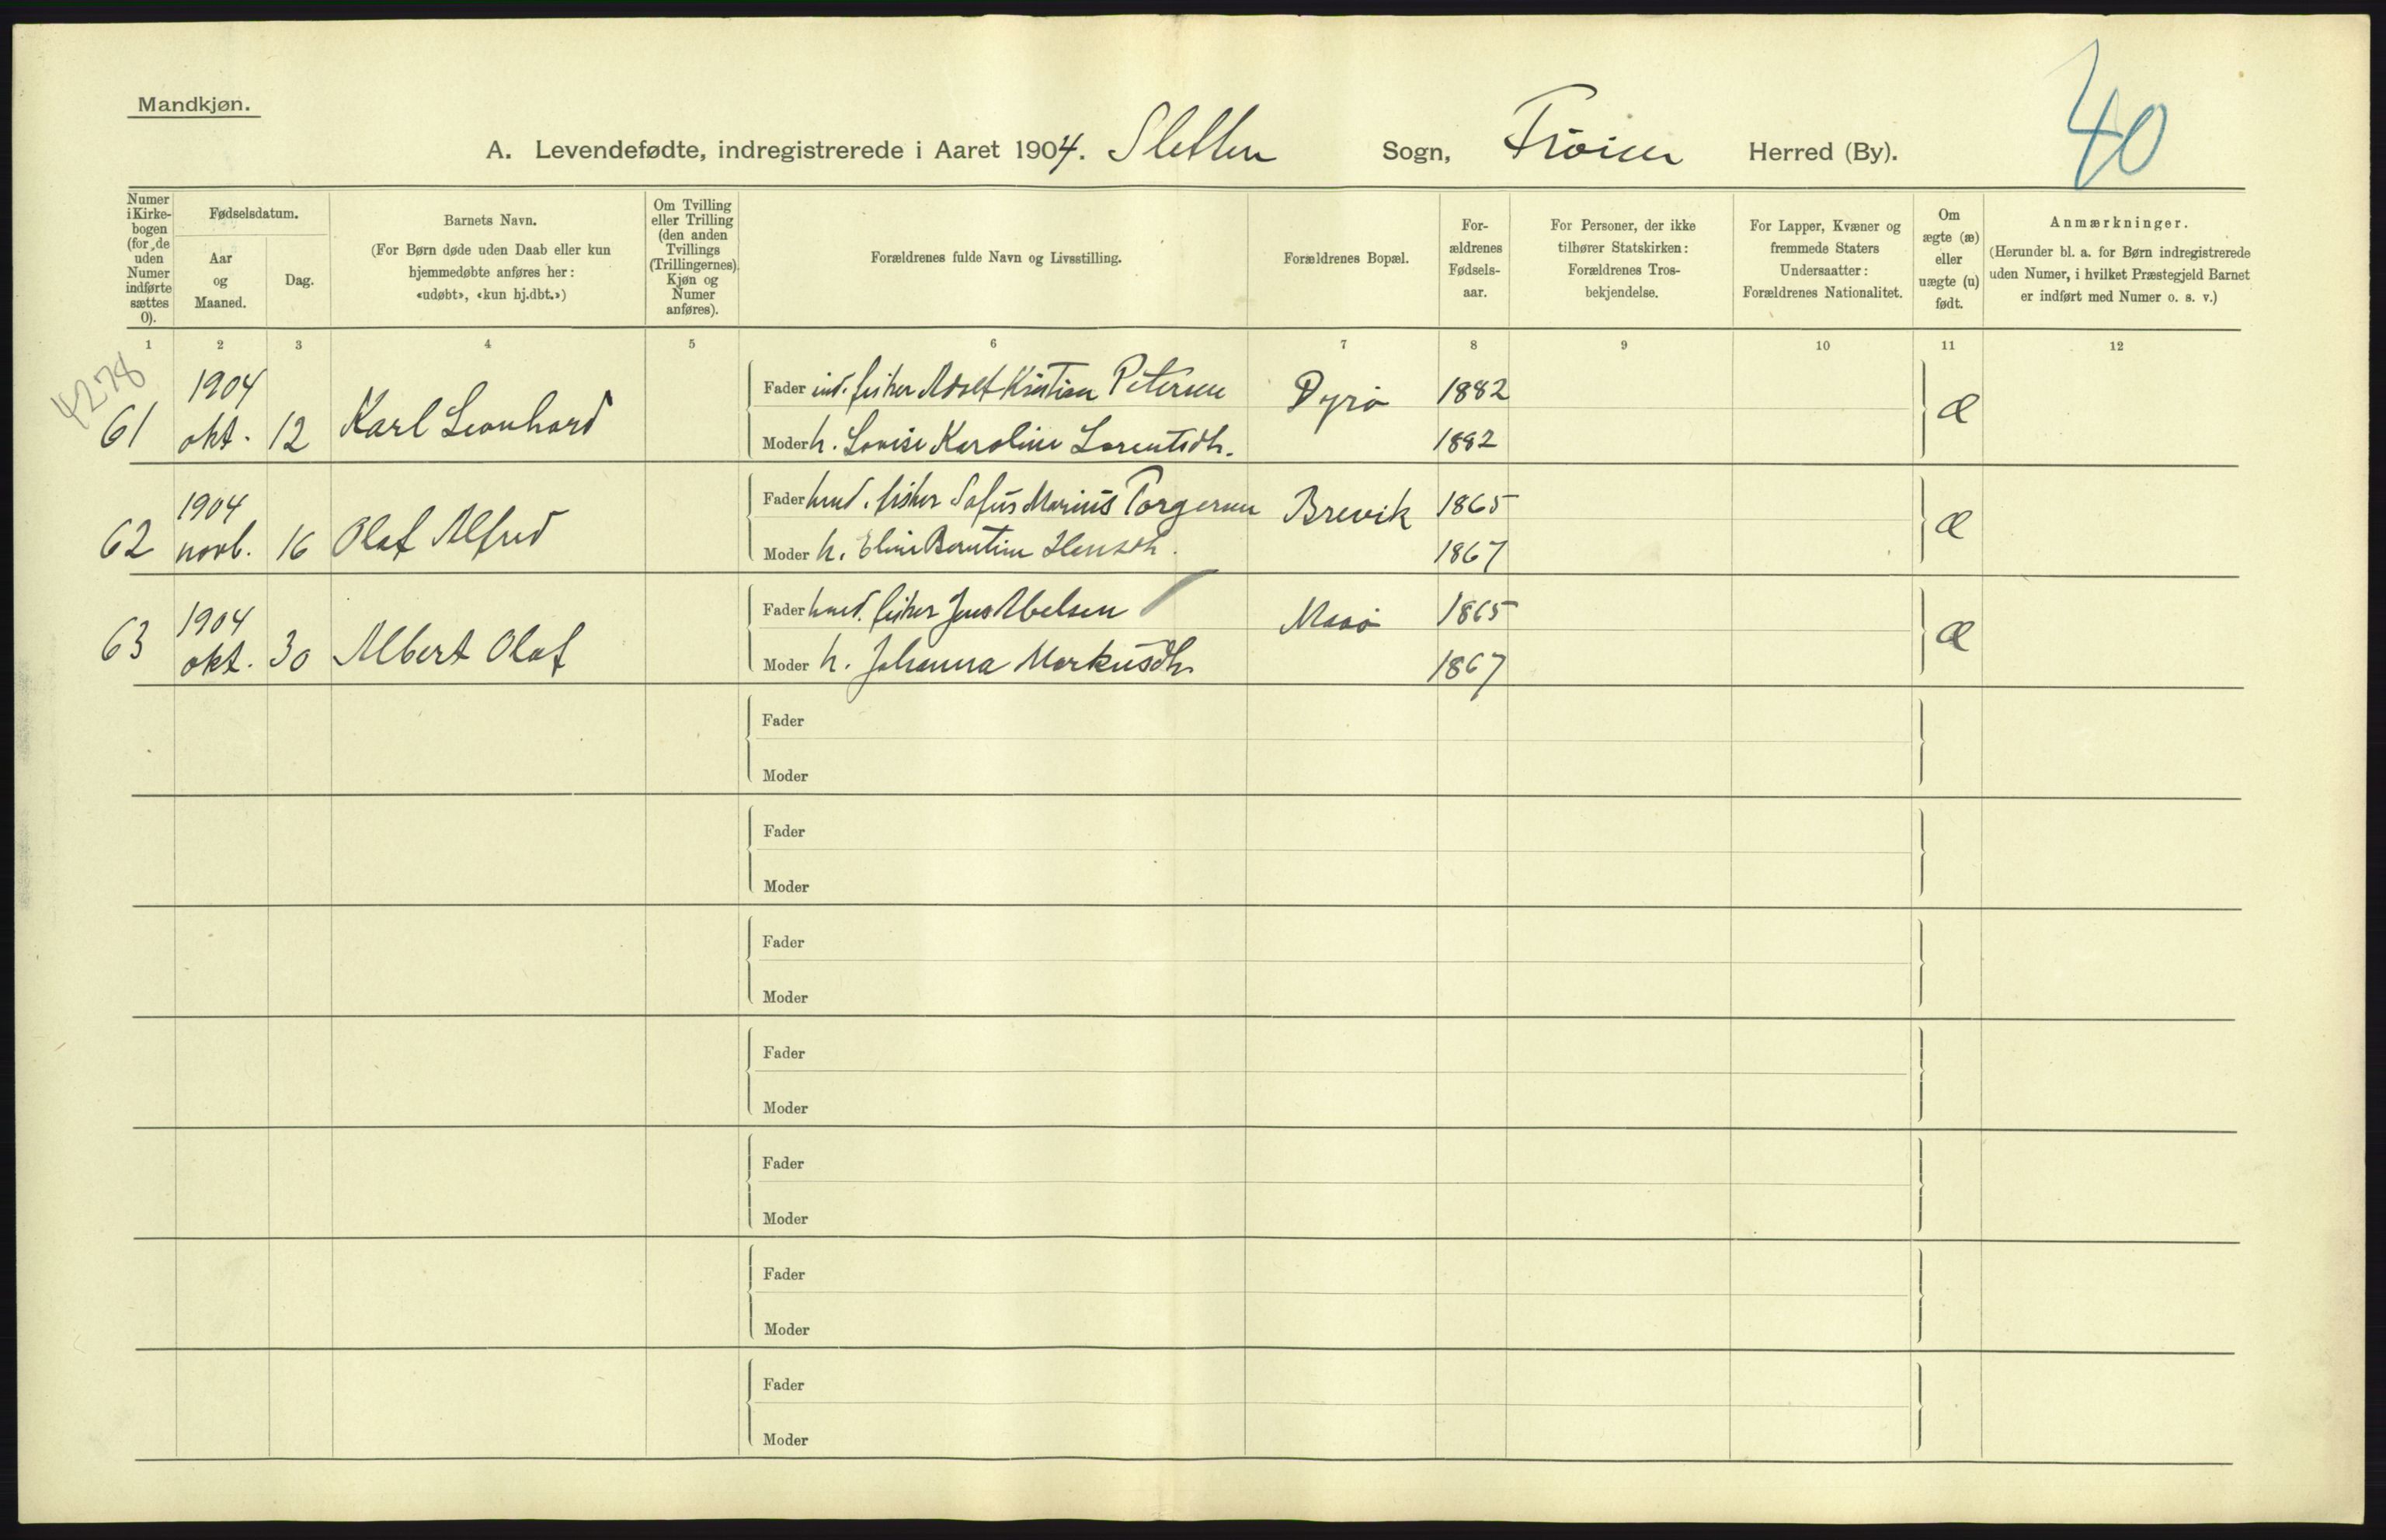 Mandkjøn.
40
A. Levendefødte, indregistrerede i Aaret 1904. Sletten Sogn, Frøien Herred (By).
Numer i Kirke-bogen (for de uden Numer indførte sættes 0).
Fødselsdatum.
Aar og Maaned.
Dag.
Barnets Navn.
(For Børn døde uden Daab eller kun
hjemmedøbte anføres her:
«udøbt», «kun hj.dbt.»)
Om Tvilling
eller Trilling
(den anden
Tvillings
(Trillingernes)
Kjøn og
Numer
anføres).
Forældrenes fulde Navn og Livsstilling.
Forældrenes Bopæl.
For-
ældrenes
Fødsels-
aar.
For Personer, der ikke
tilhører Statskirken:
Forældrenes Tros-
bekjendelse.
For Lapper, Kvæner og
fremmede Staters
Undersaatter:
Forældrenes Nationalitet.
Om
ægte (æ)
eller
uægte (u)
født.
Anmærkninger.
(Herunder bl. a. for Børn indregistrerede
uden Numer, i hvilket Præstegjeld Barnet
er indført med Numer o. s. v.)
1 2 3 4 5 6 7 8 9 10 11 12
4278
61 1904 okt. 12 Karl Leonhard
Fader ind. fisker Adolf Kristian Petersen Dyrø 1882 æ
Moder h. Lovise Karoline Lorentsdtr. 1882
62 1904 novb. 16 Olaf Alfred
Fader fisker Sofus Marius Torgersen Brevik 1865 æ
Moder h. 1867
63 1904 okt. 30 Albert Olaf
Fader fisker Jens Abelsen Maaø 1865 æ
Moder h. Johanna Markusdtr 1867
Fader
Moder
Fader
Moder
Fader
Moder
Fader
Moder
Fader
Moder
Fader
Moder
Fader
Moder